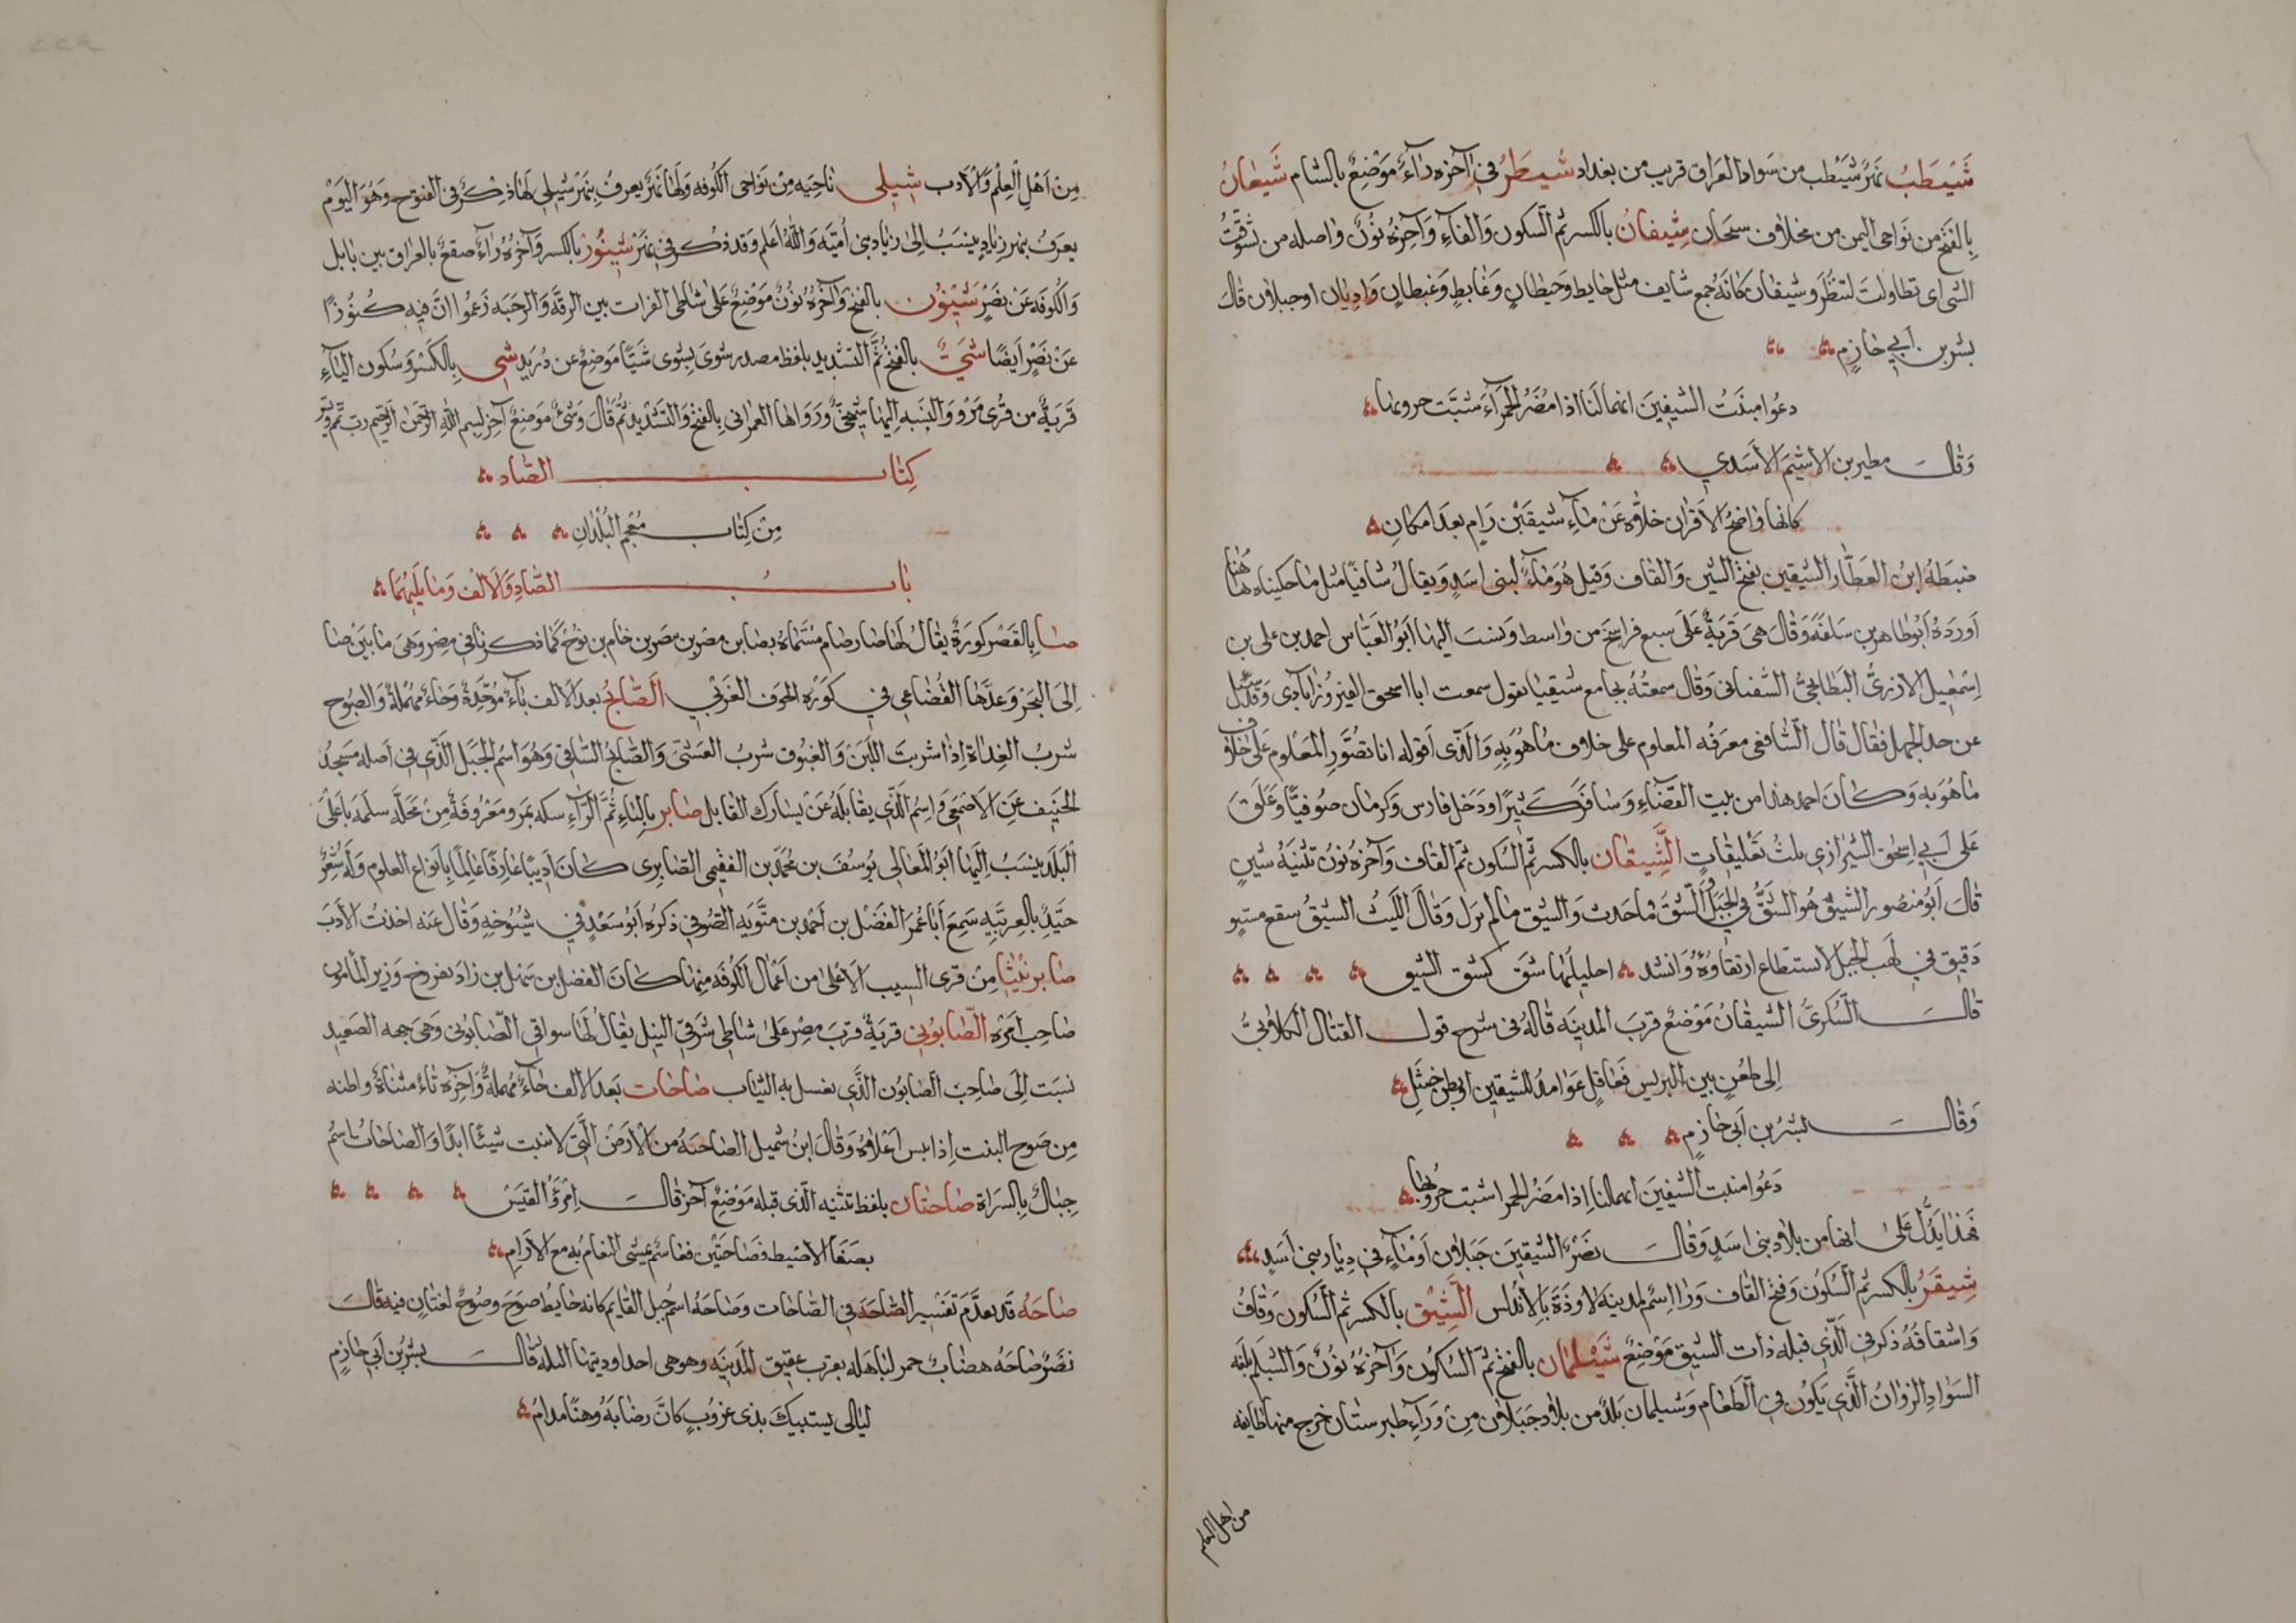 شَيْطَبُ نهرُ شَيْطب من سَواد العراق قريب من بغداد شيطرُ في آخره رآءٌ مَوْضعٌ بالشام شَيعانُ
بالفتح من نَواحي اليمن من مخلاف سنحان شيفانُ بالكسر ثم السكون وَالفآء وَآخره نُونٌ واصله من تشوَّفتُ
الشي اي تطاولتَ لتنظُرَ وشيفان كانه جمع شايف مثل حايط وَحيطانٍ وَغايطٍ وَغيطانٍ وَاديان اوجبلان قال
بشر بن ابي خازمٍ
دعوا منبتُ الشيفينَ انهما لنا اذا مُضَرُ الحمرآءُ شبّت حروبها
وَقال مطير بن الاشيم الأسدي
كانها واضحُ الاقران حلاَّه عَنْ مآءِ شيقَيْن رَامٍ بعدَ امكانِ
ضبطَهُ ابن العطَّار الشيقين بفتح الشين وَالقاف وَقيل هُوَ مَآءٌ لبنى اسَدٍ وَيقال شاقيًا مثل ما حكيناه هاهُنا
أورَدَهُ أبُو طاهر بن سلفَهُ وَقالَ هيَ قَريَةٌ عَلَى سبع فراسِخَ من واسط وَنسبَ اليها أبُو العَبَّاس احمد بن على بن
اسْمٰعيل الازديُّ البَطايحيُّ الشقناني وَقال سمعتُهُ بجامع شيقيا يقول سمعت ابا اسحق الفيروزاباذى وَقد سُئل
عن حد الجهل فقال قال الشافعى معرفَه المعلوم على خلاف مَا هُوَ بِهِ وَالّذى اقوله انا تصُوَّر المعْلوم عَلى خلاف
مَا هُوَ بِهِ وَكَانَ احمد هذا من بيت القَضَآءِ وَسَافَرَ كَثِيرًا وَدَخَل فارس وَكرمان صوفيًّا وَعَلَّقَ
عَلَى أبى اسحٰق الشيرازى ثلثَ تعْليقاتٍ الشَّيقان بالكسر ثم السكون ثم القاف وَآخرهُ نون تثنيَهُ شيقٍ
قالَ أبُو منصُور الشيقُ هُو الشَقُّ في الجَبَل وَالشّق مَا حدث وَالشيق مَا لم يزل وَقال الليث الشيقُ سقع مستوٍ
دَقيق في لهب الجبَل لا يستطاع ارتقاؤهُ وَانشد احليلها شقَّ كشق الشيق
قالَ السُّكرىُّ الشيقانُ مَوْضعٌ قربَ المدينَه قالهُ فى شرح قول القتال الكلابىُّ
إلى ظعُنٍ بين الرسيس فَعاقلٍ عَوَامدُ للشيقين اوبطن خنثلِ
وَقال بشرُ بن أبى خازمٍ
دَعُوا منبت الشيفينَ انهما لنا إذا مضَرُ الحمرا شبت حرُوبُها
فهَذا يَدُلُّ عَلىٰ انها من بلاد بنى اسَدٍ وَقال نصرٌ الشيقينَ جَبَلان أوْ مآءٌ في ديار بنى أسَدٍ
شيقَرُ بالكسر ثم السُّكون وَفتح القاف وَرا اسمٌ لمدينه لاردَةَ بالأندلس الشَّيْق بالكسر ثم السُّكون وَقافُ
وَاشتقاقُهُ ذكر في الَّذى قبله ذات الشيق مَوْضعٌ شَيْلمَان بالفتح ثم السّكون وَآخرهُ نُونٌ وَالشيلم بلغه
السَوادِ الزوانُ الَّذى يَكُون في الطَّعام وَشيلمان بَلدٌ من بلاد جبلان من وَرآءِ طبرستان خرج منها طايفه
من اهل العلم
مِن أهْلِ الْعِلْمِ وَالأدب شيلى ناحِيَه مِنْ نَوَاحى الكُوفه وَلهَا نَهرٌ يعرفُ بِنهرْ شيلى لها ذكرٌ فى الفتوح وَهُوَ اليَوْم
يعرَفُ بنهر زيادٍ يُنسَبُ الى زيَاد بن أميَّه وَاللهُ اعلم وقد ذكر في نَهرْ شينُور بالكسر وَآخرُهُ رَاءٌ صقعٌ بالعراق بين بابل
وَالكُوفَه عَنْ نصرٍ شَيْنُون بالفتح وَآخرُهُ نُونٌ مَوْضعٌ عَلَى شاطى الفرات بين الرقَّه وَالرحَبَه زَعمُوا انّ فيه كُنُوزًا
عَنْ نَصْرٍ أيضًا شَيٌّ بالفتح ثُمَّ التشديد بلفظ مصدر شوى يشوى شَيًّا مَوضعٌ عن دُريد شى بالكَسْر وَسُكون اليآءِ
قَريَةٌ من قُرى مَرْو وَالنسبَه اليها شيحىٌّ وَرَوَاهَا العمرانى بالفتح وَالتشديد ثُمَّ قَالَ وَشىٌّ مَوضعٌ آخر بسم الله الرحمن الرحيم رب تمم ويسر
كِتَاب الصَّاد
مِنْ كِتاب مُعْجم البُلْدان
بَاب الصَّادِ وَالالف وَمَا يَليهُمَا
صَا بالقَصْر كورَةٌ يقالُ لَها صا رصام مسَّماةٌ بصا بن مصْر بن مصر بن حام بن نوح كما ذكرنا في مصر وَهيَ ما بَيْن صا
الى البَحَرْ وَعدَّها القُضاعى في كوره الحَوْف الغَرْبي الصَّابحُ بعد الالف بآءٌ مُوَحَّدةٌ وَحاءٌ مهْملةٌ وَالصبُوح
شربُ الغداة اذا شربتَ اللبَن وَالغبُوق شربُ العَشىّ وَالصَّابحُ السَّاقى وَهُوَ اسْمُ الجَبَل الَّذى في أصله مَسجدُ
الخيف عَن الاصْمعى وَاسمُ الَّذى يقابلُهُ عَنْ يسارك القابل صابر بالبَاءِ ثُمَّ الرآءِ سكه بمَرو معْرُوفَةٌ مِنْ مَحَلَّه سَلمه بأعْلَى
البَلَد ينسَبُ اليها ابُو المَعَالى يُوسُفَ بن مُحَمَّد بن الفقيمى الصَّابرى كانَ أديبًا عارفًا عَالمًا بِأنواع العلوم وَلهُ شعْرٌ
جيّدٌ بالعربيَّه سَمِعَ أبا عُمرَ الفَضْل بن أحْمد بن متَّويَه الصُّوفي ذكرهُ أبُو سَعْدٍ في شيُوخهِ وَقال عنه اخذتُ الادَبَ
صَابرنيثَا مِنْ قرى السِّيب الأعْلى من اعْمَال الكُوفَه منها كانَ الفضل بن سَهْل بن زاد نفروخ وَزير المأمون
صَاحِب أمْره الصَّابوُني قَريَةٌ قربَ مِصْر عَلى شاطى شَرْقى النيل يقالُ لَها سواقى الصَّابونى وَهىَ جهه الصَعيد
نسبَت إلَى صَاحِب الصَّابُون الَّذى يغسل به الثيَاب صَاحَات بَعدَ الالف حَآءٌ مُهملةٌ وَآخِره تاءٌ مثناةٌ واظنه
مِن صَوح النبت إذا يبس اعْلاهُ وَقالَ ابنُ شميل الصَاحَهُ من الأرْض الَّتى لا تنبت شيئًا ابدًا وَالصَاحَاتُ اسْمُ
جِبَالٍ بالسَراة صَاحتَان بلفظ تثنيه الّذى قبله مَوْضعٌ آخر قالَ امْرُؤ القيَسْ
بصَفَا الاطيط فصَاحَتَيْن فغاسمٌ يمشى النعَام بُه مع الارَامِ
صَاحَه قَد تقدَّم تَفسير الصَّاحَهَ في الصَّاحَات وَصَاحَهُ اسمُ جبل القايم كانه حايطٌ صوحَ وصُوحٌ لغتَان فيه قالَ
نصَرٌ صَاحَه هضَابٌ حمر لبَاهله بقرب عقيق المَدينَه وهو هى احد اوديتها الثلثه قال بشرُ بن أبى خازمٍ
لَيَالى يستبيكَ بذى غزوُبٍ كانَّ رضَابَهُ وَهنًا مدامُ